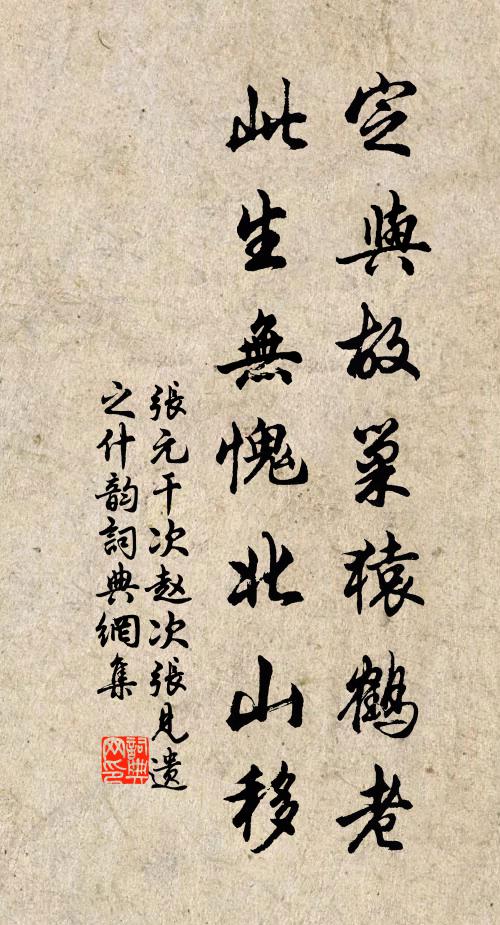 定與故巢猿鶴老
此生無愧北山移
張元干次赵次張見遗
之什韵詞典網集
詞典網印